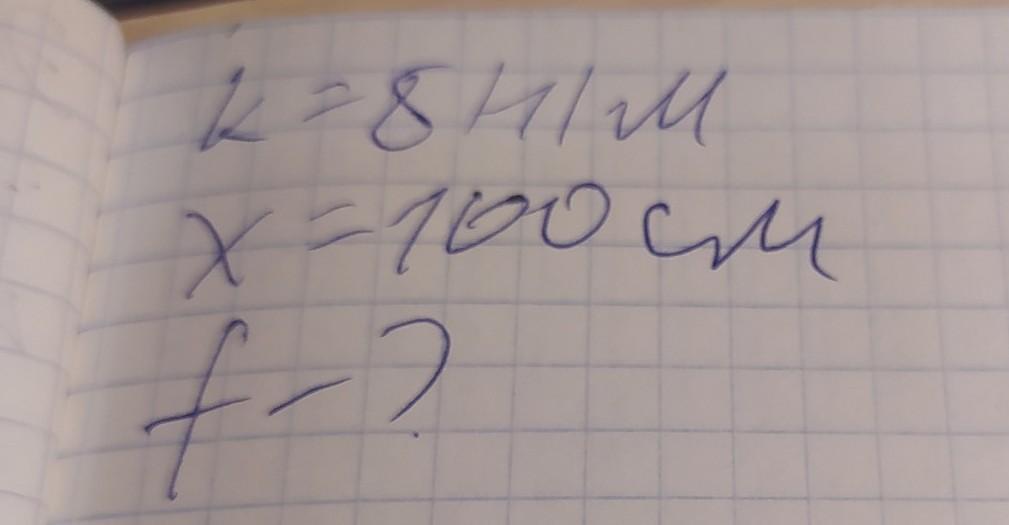 k = 8 Н/м
x = 100 см
f - ?